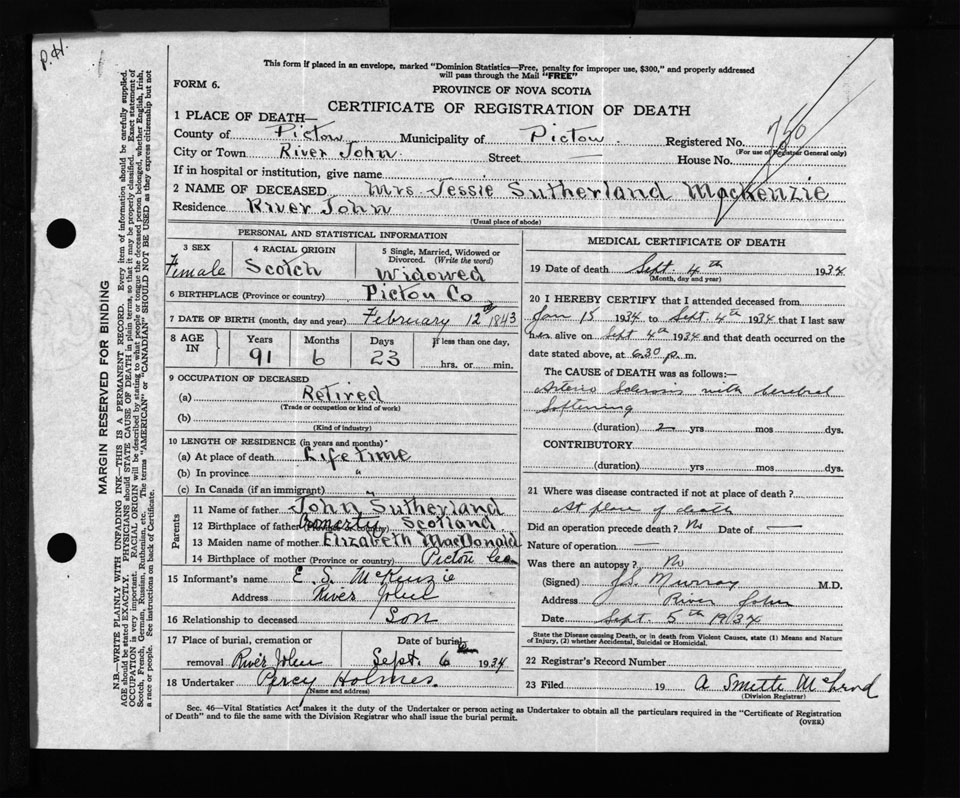 P.H.
This form if placed in an envelope, marked "Dominion Statistics—Free, penalty for improper use, $300," and properly addressed
will pass through the Mail "FREE"
FORM 6.
PROVINCE OF NOVA SCOTIA
CERTIFICATE OF REGISTRATION OF DEATH
1 PLACE OF DEATH—
County of Pictou Municipality of Pictou. Registered No. 750
(For use of Registrar General only)
City or Town River John. Street — House No.
If in hospital or institution, give name
2 NAME OF DECEASED Mrs. Jessie Sutherland MacKenzie
Residence River John
(Usual place of abode)
PERSONAL AND STATISTICAL INFORMATION
3 SEX Female
4 RACIAL ORIGIN Scotch
5 Single, Married, Widowed or Divorced. (Write the word) Widowed
6 BIRTHPLACE (Province or country) Pictou Co
7 DATE OF BIRTH (month, day and year) February 12th 1843
8 AGE IN Years 91 Months 6 Days 23 If less than one day, hrs. or min.
9 OCCUPATION OF DECEASED
(a) Retired
(Trade or occupation or kind of work)
(b)
(Kind of industry)
10 LENGTH OF RESIDENCE (in years and months)
(a) At place of death Life time
(b) In province "
(c) In Canada (if an immigrant) "
Parents
11 Name of father John Sutherland
12 Birthplace of father (Province or country) Cromarty Scotland
13 Maiden name of mother Elizabeth MacDonald
14 Birthplace of mother (Province or country) Pictou Co
15 Informant's name E. S. McKenzie
Address River John
16 Relationship to deceased Son
17 Place of burial, cremation or removal River John Date of burial Sept. 6 1934
18 Undertaker Percy Holmes.
(Name and address)
MEDICAL CERTIFICATE OF DEATH
19 Date of death Sept. 4th 1934
(Month, day and year)
20 I HEREBY CERTIFY that I attended deceased from
Jan 15 1934 to Sept. 4th 1934 that I last saw
h alive on Sept 4th 1934 and that death occurred on the
date stated above, at 6.30 p. m.
The CAUSE of DEATH was as follows:—
Arterio Sclerosis with Cerebral
Softening
(duration) 2 yrs mos dys.
CONTRIBUTORY
(duration) yrs mos dys.
21 Where was disease contracted if not at place of death?
At place of death
Did an operation precede death? No Date of —
Nature of operation —
Was there an autopsy? No
(Signed) J.S. Murray M.D.
Address River John
Date Sept. 5th 1934
State the Disease causing Death, or in death from Violent Causes, state (1) Means and Nature
of Injury, (2) whether Accidental, Suicidal or Homicidal.
22 Registrar's Record Number
23 Filed 19 A Smith McLeod
(Division Registrar)
Sec. 46—Vital Statistics Act makes it the duty of the Undertaker or person acting as Undertaker to obtain all the particulars required in the "Certificate of Registration
of Death" and to file the same with the Division Registrar who shall issue the burial permit.
(OVER)
MARGIN RESERVED FOR BINDING
N.B.—WRITE PLAINLY WITH UNFADING INK—THIS IS A PERMANENT RECORD. Every item of information should be carefully supplied.
AGE should be stated EXACTLY. PHYSICIANS should STATE CAUSE OF DEATH in plain terms, so that it may be properly classified. Exact statement of
OCCUPATION is very important. RACIAL ORIGIN will be described by stating to what people or tongue the deceased person belonged, whether English, Irish,
Scotch, French, German, Russian, Ruthenian, etc. The terms "AMERICAN" or "CANADIAN" SHOULD NOT BE USED as they express citizenship but not
a race or people. See instructions on back of Certificate.